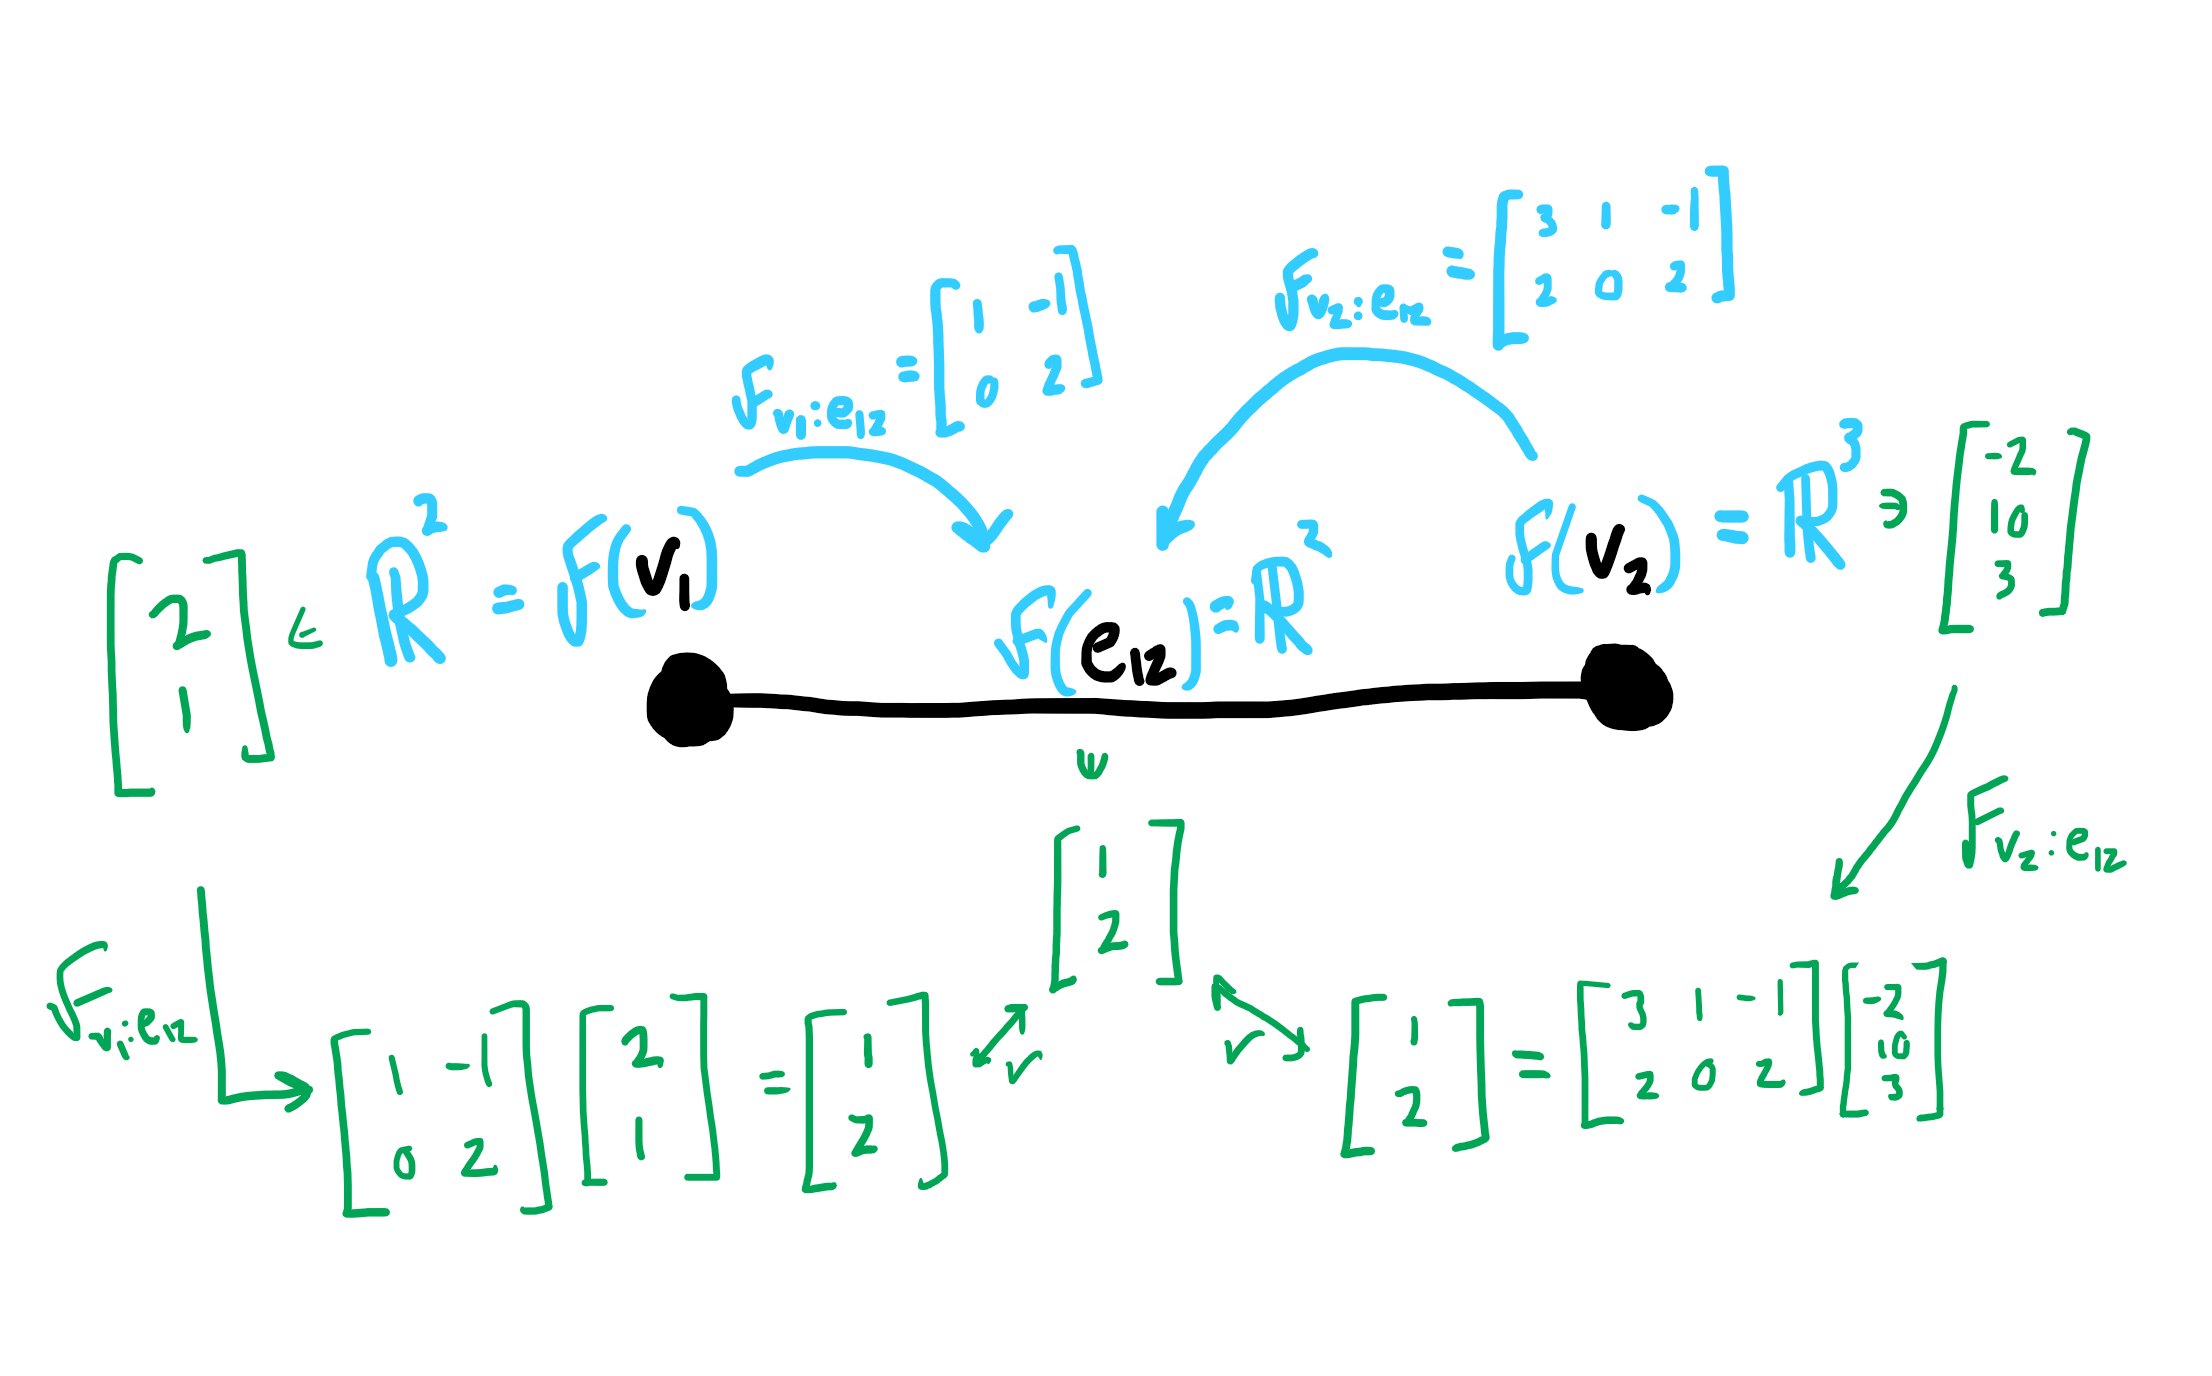 F_{v_1:e_{12}} = [1 -1; 0 2]
F_{v_2:e_{12}} = [3 1 -1; 2 0 2]
[2; 1] ∈ ℝ^2 = F(v_1)
F(e_{12}) = ℝ^2
F(v_2) = ℝ^3 ∋ [-2; 10; 3]
∈
[1; 2]
F_{v_1:e_{12}}
F_{v_2:e_{12}}
[1 -1; 0 2] [2; 1] = [1; 2]
r
r
[1; 2] = [3 1 -1; 2 0 2] [-2; 10; 3]